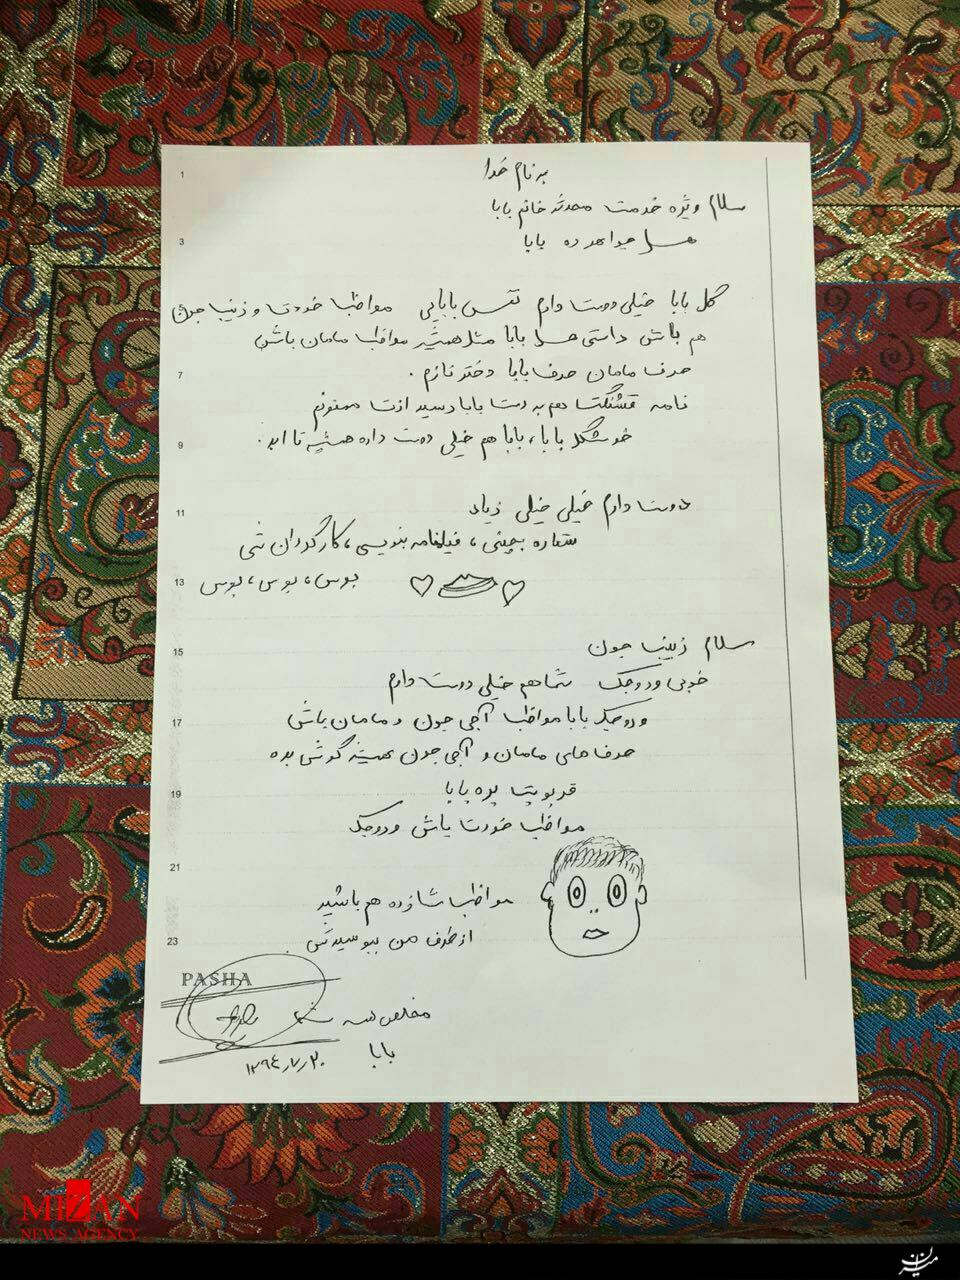 به نام خدا
1
سلام ویژه خدمت محدثه خانم بابا
3
بابا
گل بابا خیلی دوست دارم نفس بابایی مواظب خودت و زینب جون
هم باش راستی بابا مثل همیشه مواظب مامان باش
7
حرف مامان حرف بابا دختر نازم .
نامه قشنگت هم به دست بابا رسید ازت ممنونم
9
خوشگل بابا، بابا هم خیلی دوست داره همیشه تا ابد .
11
دوست دارم خیلی خیلی زیاد
ستاره بچینی ، فیلنامه بنویسی ، کارگردان شی
13
بوس ، بوس ، بوس
15
سلام زینب جون
خوبی وروجک شما هم خیلی دوست دارم
17
وروجک بابا مواظب آجی جون و مامان باش
حرف های مامان و آجی جون همیشه گوش بده
19
قربونت بره بابا
مواظب خودت باش وروجک
21
مواظب شازده هم باشید
23
از طرف من ببوسیدش
PASHA
مخلص همه
بابا
۱۳۹۴٫۷٫۲۰
MIZAN
NEWS AGENCY
میزان